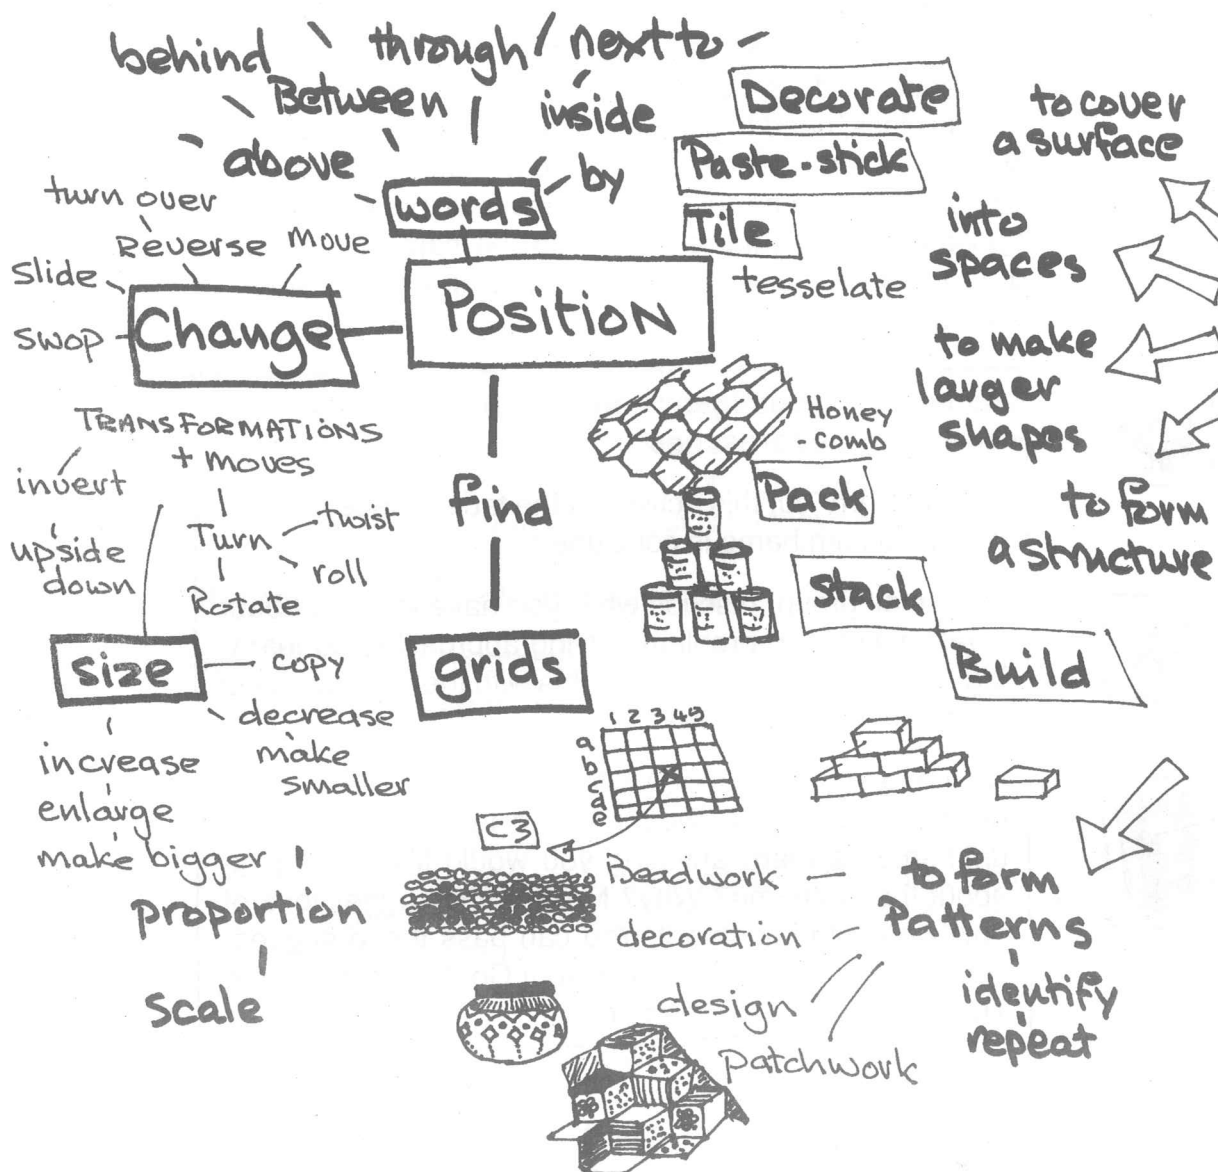 behind
through
next to
Between
inside
above
by
words
Decorate
Paste-stick
Tile
tesselate
to cover
a surface
into
spaces
to make
larger
shapes
to form
a structure
turn over
Reverse
move
Slide
swop
Change
Position
TRANSFORMATIONS
+ moves
invert
upside
down
Turn
twist
roll
Rotate
find
grids
Honey
-comb
Pack
stack
Build
size
copy
decrease
make
smaller
increase
enlarge
make bigger
proportion
scale
1 2 3 4 5
a
b
c
d
e
C3
Beadwork
decoration
design
patchwork
to form
Patterns
identify
repeat